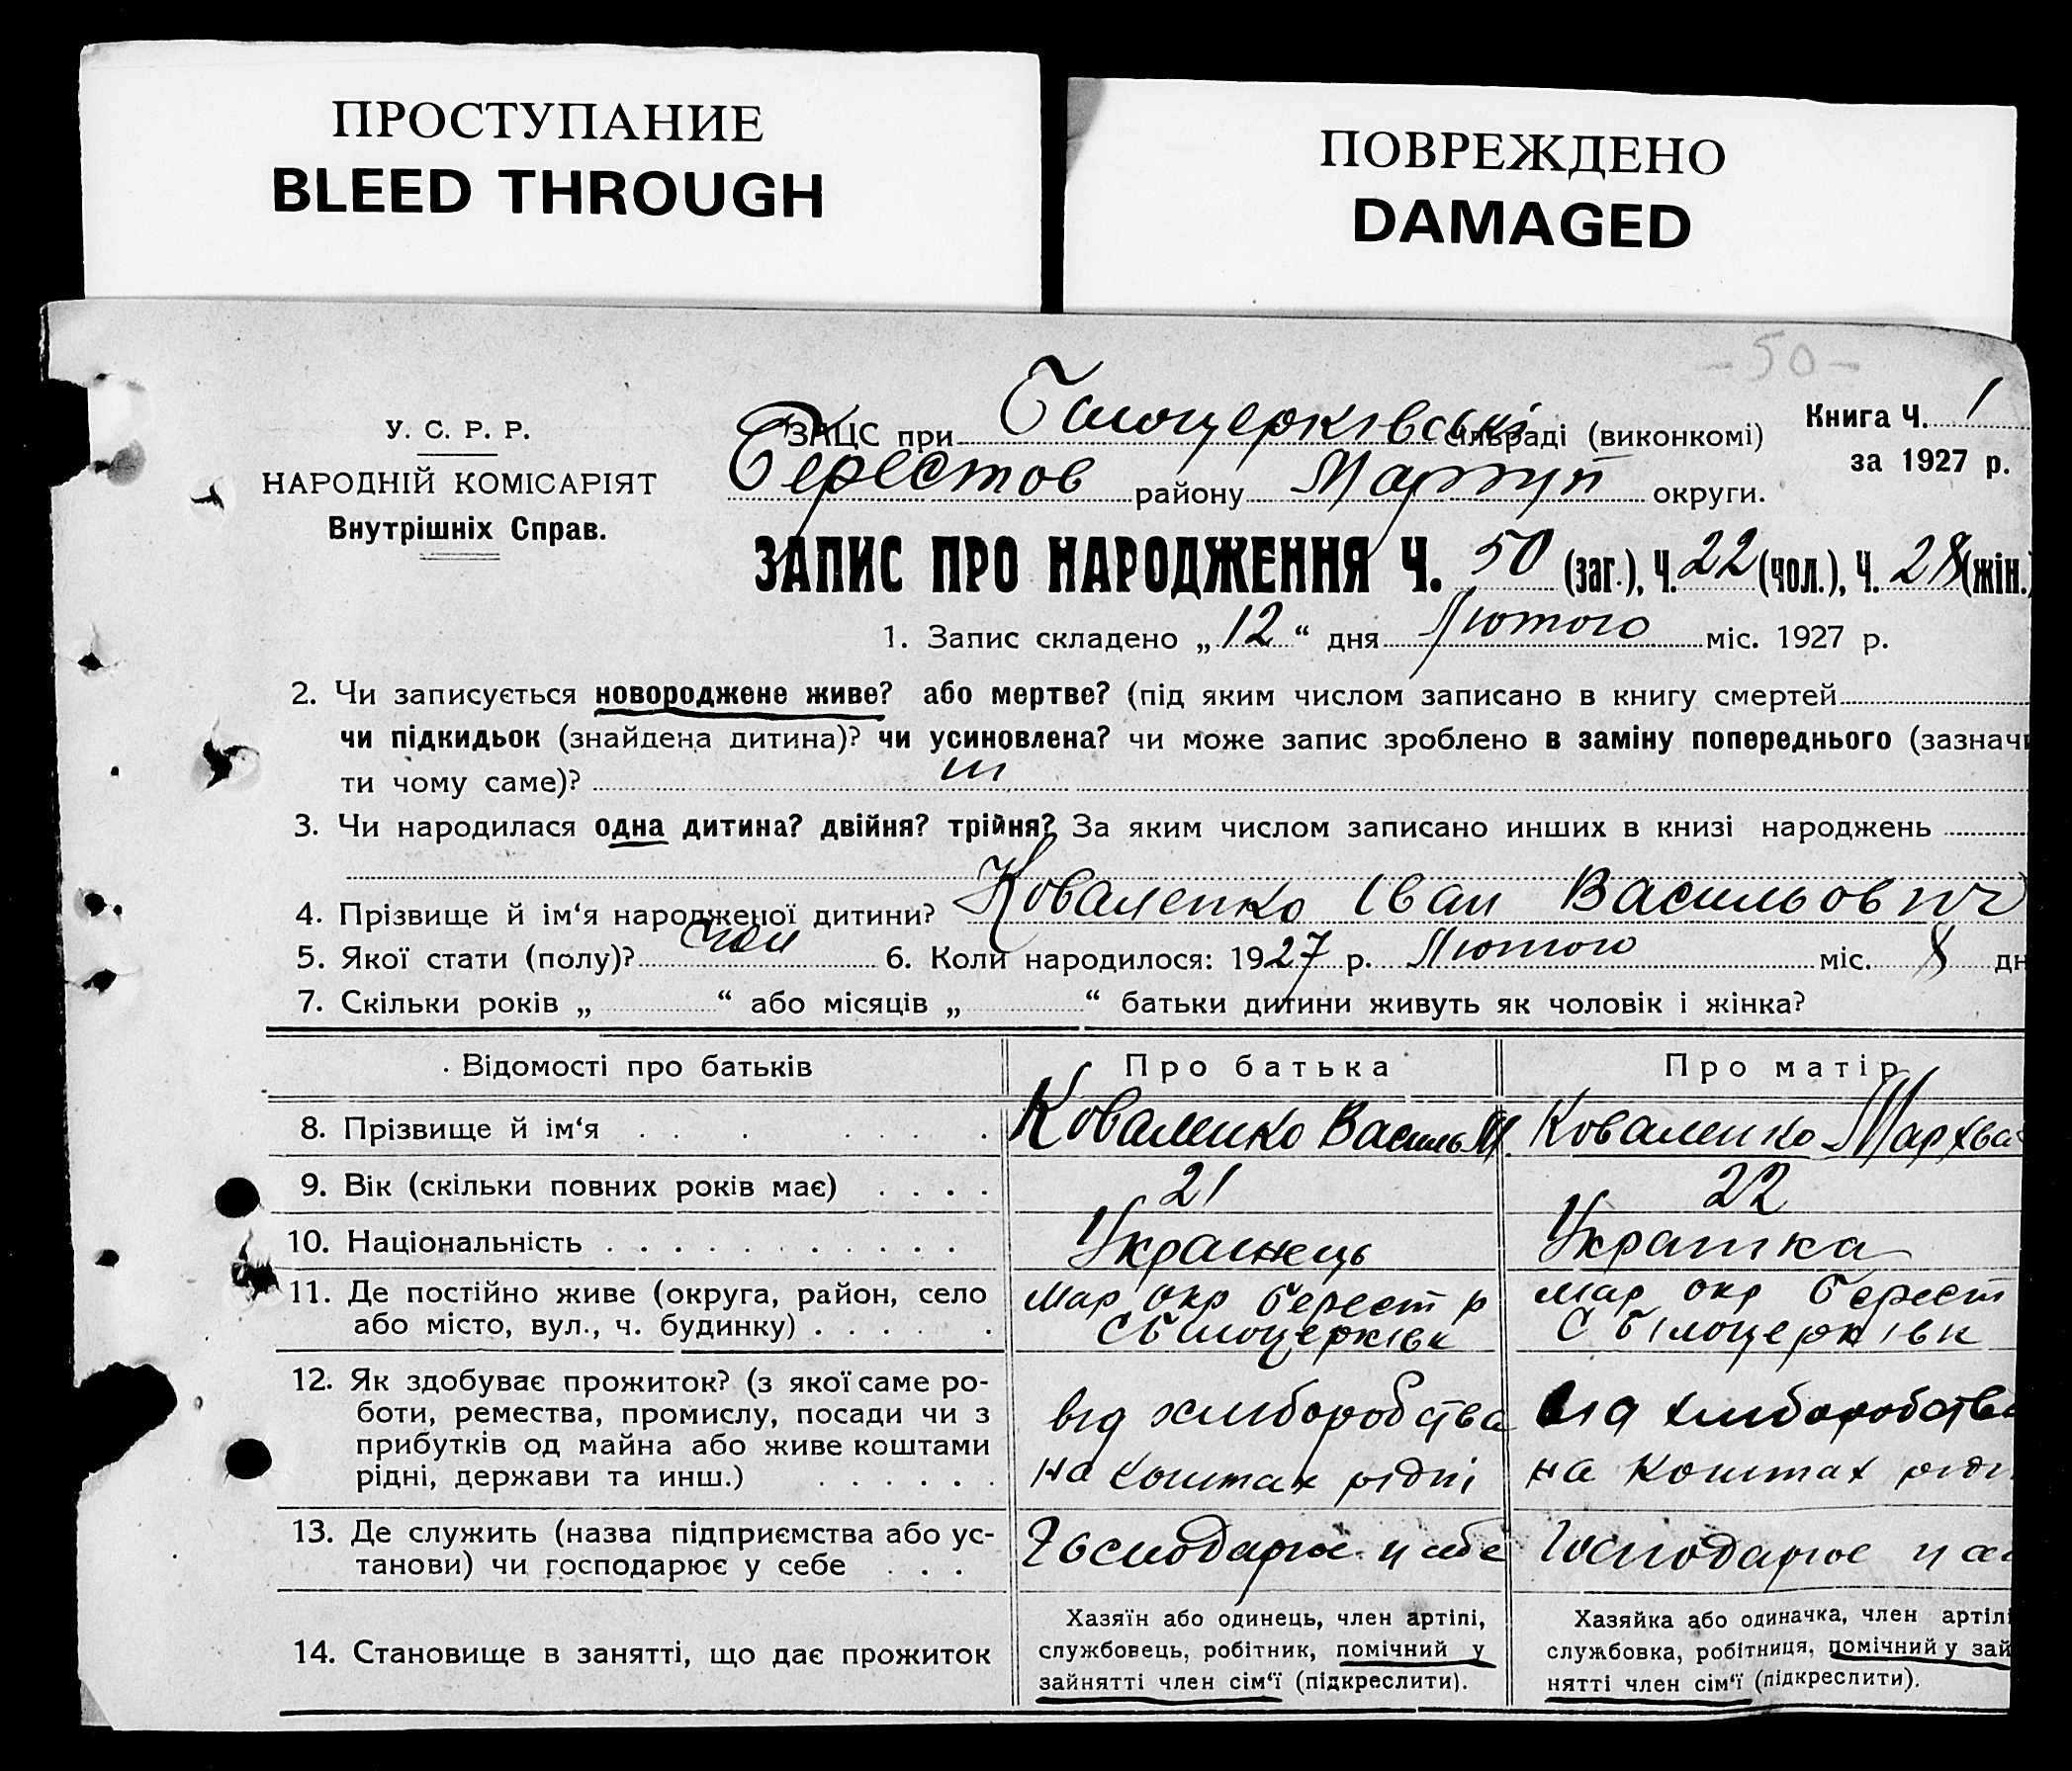 ПРОСТУПАНИЕ
BLEED THROUGH
ПОВРЕЖДЕНО
DAMAGED
-50-
У. С. Р. Р.
НАРОДНІЙ КОМІСАРІЯТ
Внутрішніх Справ.
ЗАЦС при Білоцерківські сільраді (виконкомі)
Книга Ч. 1
за 1927 р.
Берестов району Маріуп округи.
ЗАПИС ПРО НАРОДЖЕННЯ Ч. 50 (заг.), Ч. 22 (чол.), Ч. 28 (жін.)
1. Запис складено „12“ дня Лютого міс. 1927 р.
2. Чи записується новороджене живе? або мертве? (під яким числом записано в книгу смертей
чи підкидьок (знайдена дитина)? чи усиновлена? чи може запис зроблено в заміну попереднього (зазначи
ти чому саме)?
3. Чи народилася одна дитина? двійня? трійня? За яким числом записано инших в книзі народжень
4. Прізвище й ім‘я народженої дитини? Коваленко Іван Васильович
5. Якої стати (полу)? чол 6. Коли народилося: 1927 р. Лютого міс. 8 дн
7. Скільки років „ “ або місяців „ “ батьки дитини живуть як чоловік і жінка?
Відомості про батьків Про батька Про матір
8. Прізвище й ім‘я Коваленко Василь М. Коваленко Мархва
9. Вік (скільки повних років має) 21 22
10. Національність Українець Українка
11. Де постійно живе (округа, район, село
або місто, вул., ч. будинку)
Мар окр Берест р
С Білоцерківк
Мар окр Берест
С Білоцерківк
12. Як здобуває прожиток? (з якої саме ро-
боти, ремества, промислу, посади чи з
прибутків од майна або живе коштами
рідні, держави та инш.)
від хліборобства
на коштах рідні
від хліборобства
на коштах рідн
13. Де служить (назва підприємства або ус-
танови) чи господарює у себе
Господарює у себе
Господарює у
14. Становище в занятті, що дає прожиток
Хазяїн або одинець, член артілі,
службовець, робітник, помічний у
зайнятті член сім‘ї (підкреслити).
Хазяйка або одиначка, член артілі
службовка, робітниця, помічний у зай
нятті член сім‘ї (підкреслити).